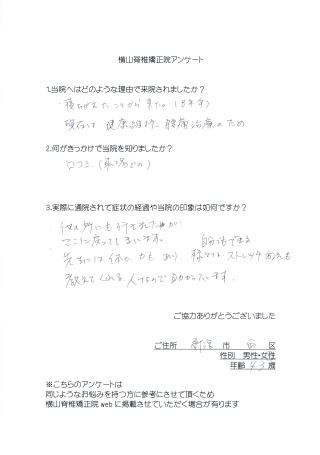 横山脊椎矯正院アンケート
1.当院へはどのような理由で来院されましたか?
・寝ちがえたことから来た。(8年前)
現在は 健康維持、腰痛治療のため
2.何がきっかけで当院を知りましたか?
口コミ(職場での)
3.実際に通院されて症状の経過や当院の印象は如何ですか?
・他の所にも行きましたが、
ここに戻ってしまいます。
先生には 体 力も あり 様々な ストレッチ方法も
教えてくれる 人なので助かっています。
ご協力ありがとうございました
ご住所 新潟 市 西 区
性別 男性・女性
年齢 43 歳
※こちらのアンケートは
同じようなお悩みを持つ方に参考にさせて頂くため
横山脊椎矯正院 web に掲載させていただく場合が有ります